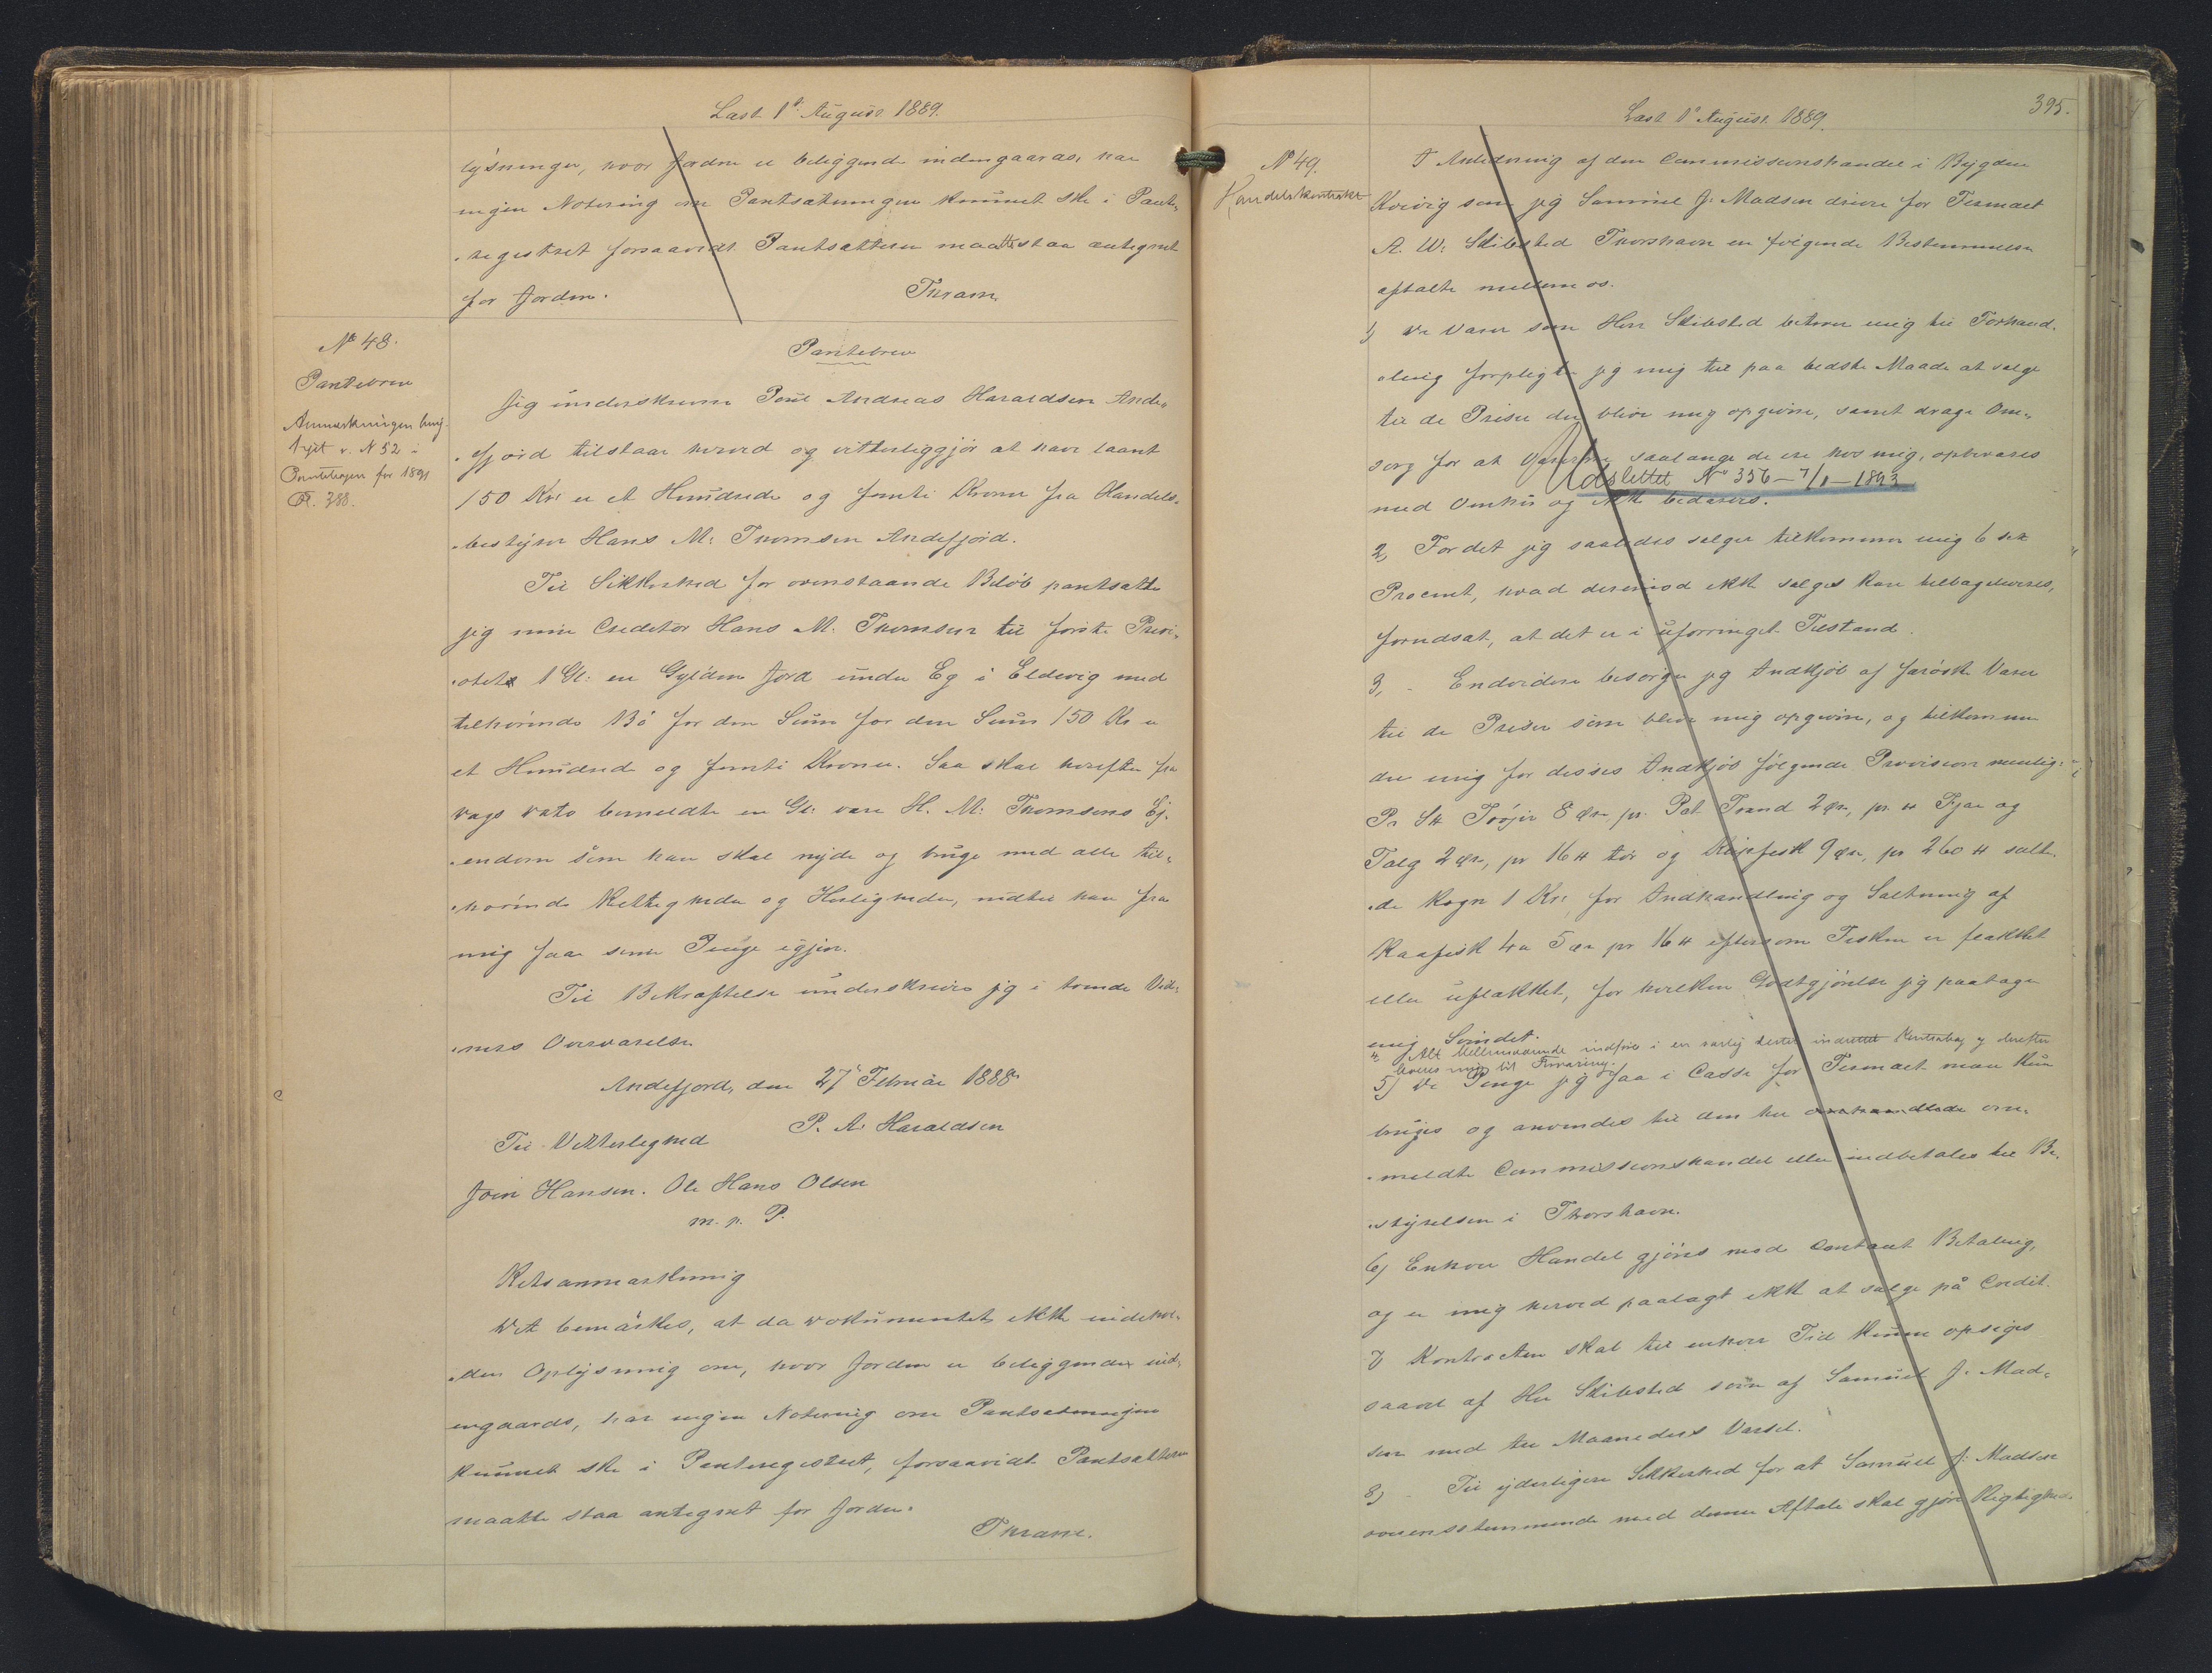 Læst 1ste August 1889.
lysninger, hvor Jorden er beliggende indengaards, har
ingen Notering om Pantsætningen kunnet ske i Pante-
registret forsaavidt Pantsætteren maatte staa antegnet
for Jorden.
Thram
No 48.
Pantebrev
Anmærkningen
v. N 52 i
for 1891
388.
Pantebrev
Jeg underskrevne Poul Andreas Haraldsen Ande-
fjord tilstaar herved og vitterliggjør at have laant
150 Kr: er et Hundrede og femti Kroner fra Handels-
bestyrer Hans M. Thomsen Andefjord.
Til Sikkerhed for ovenstaaende Beløb pantsætter
jeg min Creditor Hans M. Thomsen til første Prio-
ritet 1 Gl: en Gylden Jord under Eg i Eldevig med
tilhørende Bø for den Sum for den Sum 150 Kr er
et Hundred og femti Kroner. Saa skal herefter fra
Dags Dato bemeldte en Gl: være H. M: Thomsens Ej-
endom som han skal nyde og bruge med alle til-
hørende Rettigheder og Herligheder, indtil han fra
mig faar sine Penge igjen.
Til Bekræftelse underskrives jeg i tvende Vid-
ners Overværelse
Andefjord, den 27' Februar 1888
P. A. Haraldsen
Til Vitterlighed
Joen Hansen. Ole Hans Olsen
m. p. P.
Retsanmærkning
Det bemærkes, at da Dokumentet ikke indehol-
der Oplysning om, hvor Jorden er beliggende ind-
engaards, har ingen Notering om Pantsætningen
kunnet ske i Panteregistret, forsaavidt Pantsætteren
maatte staa antegnet for Jorden.
Thram.
Læst 1ste August 1889.
395.
No 49.
Handelskontrakt
I Anledning af den Commissionshandel i Bygden
Kvivig som jeg Samuel J. Madsen driver for Firmaet
A. W. Skibsted Thorshavn er følgende Bestemmelser
aftalte mellem os.
1) De Varer som Herr Skibsted betroer mig til Forhand-
ling forpligter jeg mig til paa bedste Maade at sælge
til de Priser der bliver mig opgivne, samt drage Om-
sorg for at Varerne saalænge de ere hos mig, opbevares
Udslettet No 356 – 7/1 – 1893
med Omhu og ikke bedærves.
2, For det jeg saaledes sælger tilkommer mig 6 sex
Procent, hvad derimod ikke sælges kan tilbageleveres,
forudsat, at det er i uforringet Tilstand.
3, - Endvidere besørger jeg Indkjøb af færøske Varer
til de Priser som bliver mig opgivne, og tilkommer
der mig for disses Indkjøb følgende Provision nemlig:
Pr Stk Trøjer 8 Øre, pr. Pot Trand 2 Øre, pr. ℔ Fjær og
Talg 2 Øre, pr 16 ℔ tør og Klipfisk 9 Øre, pr 260 ℔ salte-
de Rogn 1 Kr: for Indhandling og Saltning af
Raafisk 4 a 5 Øre pr 16 ℔ eftersom Fisken er flækket
eller uflækket, for hvilken Godtgjørelse jeg paatager
mig Svindet.
4, Alt Mellemværende indføres i en særlig dertil indrettet Kontrabog og derefter
leveres mig til Forvaring.
5) De Penge jeg faar i Casse for Firmaet maa kun
bruges og anvendes til den her omhandlede om-
meldte Commissionshandel eller indbetales til Be-
styrelsen i Thorshavn.
6) Enhver Handel gjøres mod Contant Betaling,
og er mig herved paalagt ikke at sælge på Credit.
7 Kontracten skal til enhver Tid kunne opsiges
saavel af Hr Skibsted som af Samuel J. Mad-
sen med tre Maaneders Varsel.
8) - Til yderligere Sikkerhed for at Samuel J: Madsen
overensstemmende med denne Aftale skal gjøre Rigtighed